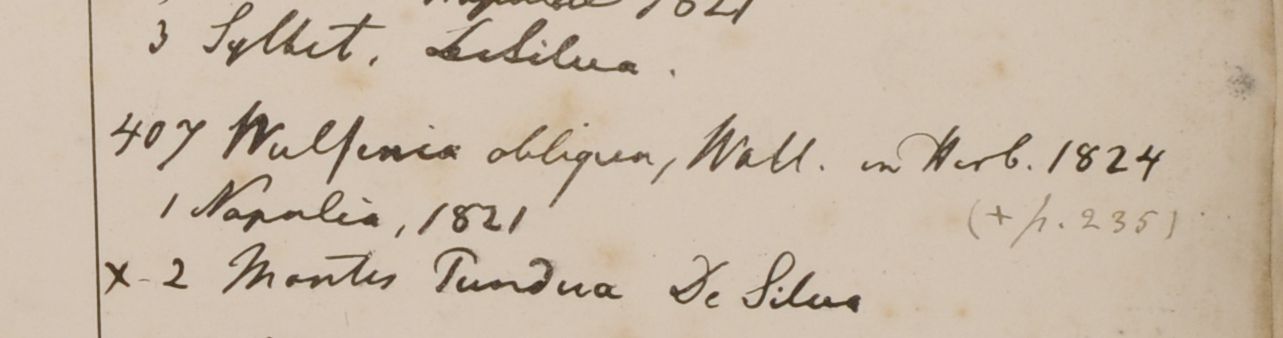 1821
3 Sylhet. DeSilva.
407 Wulfenia obliqua, Wall. in Herb. 1824
1 Napalia, 1821 (+ p. 235)
x 2 Montes Tundua De Silva